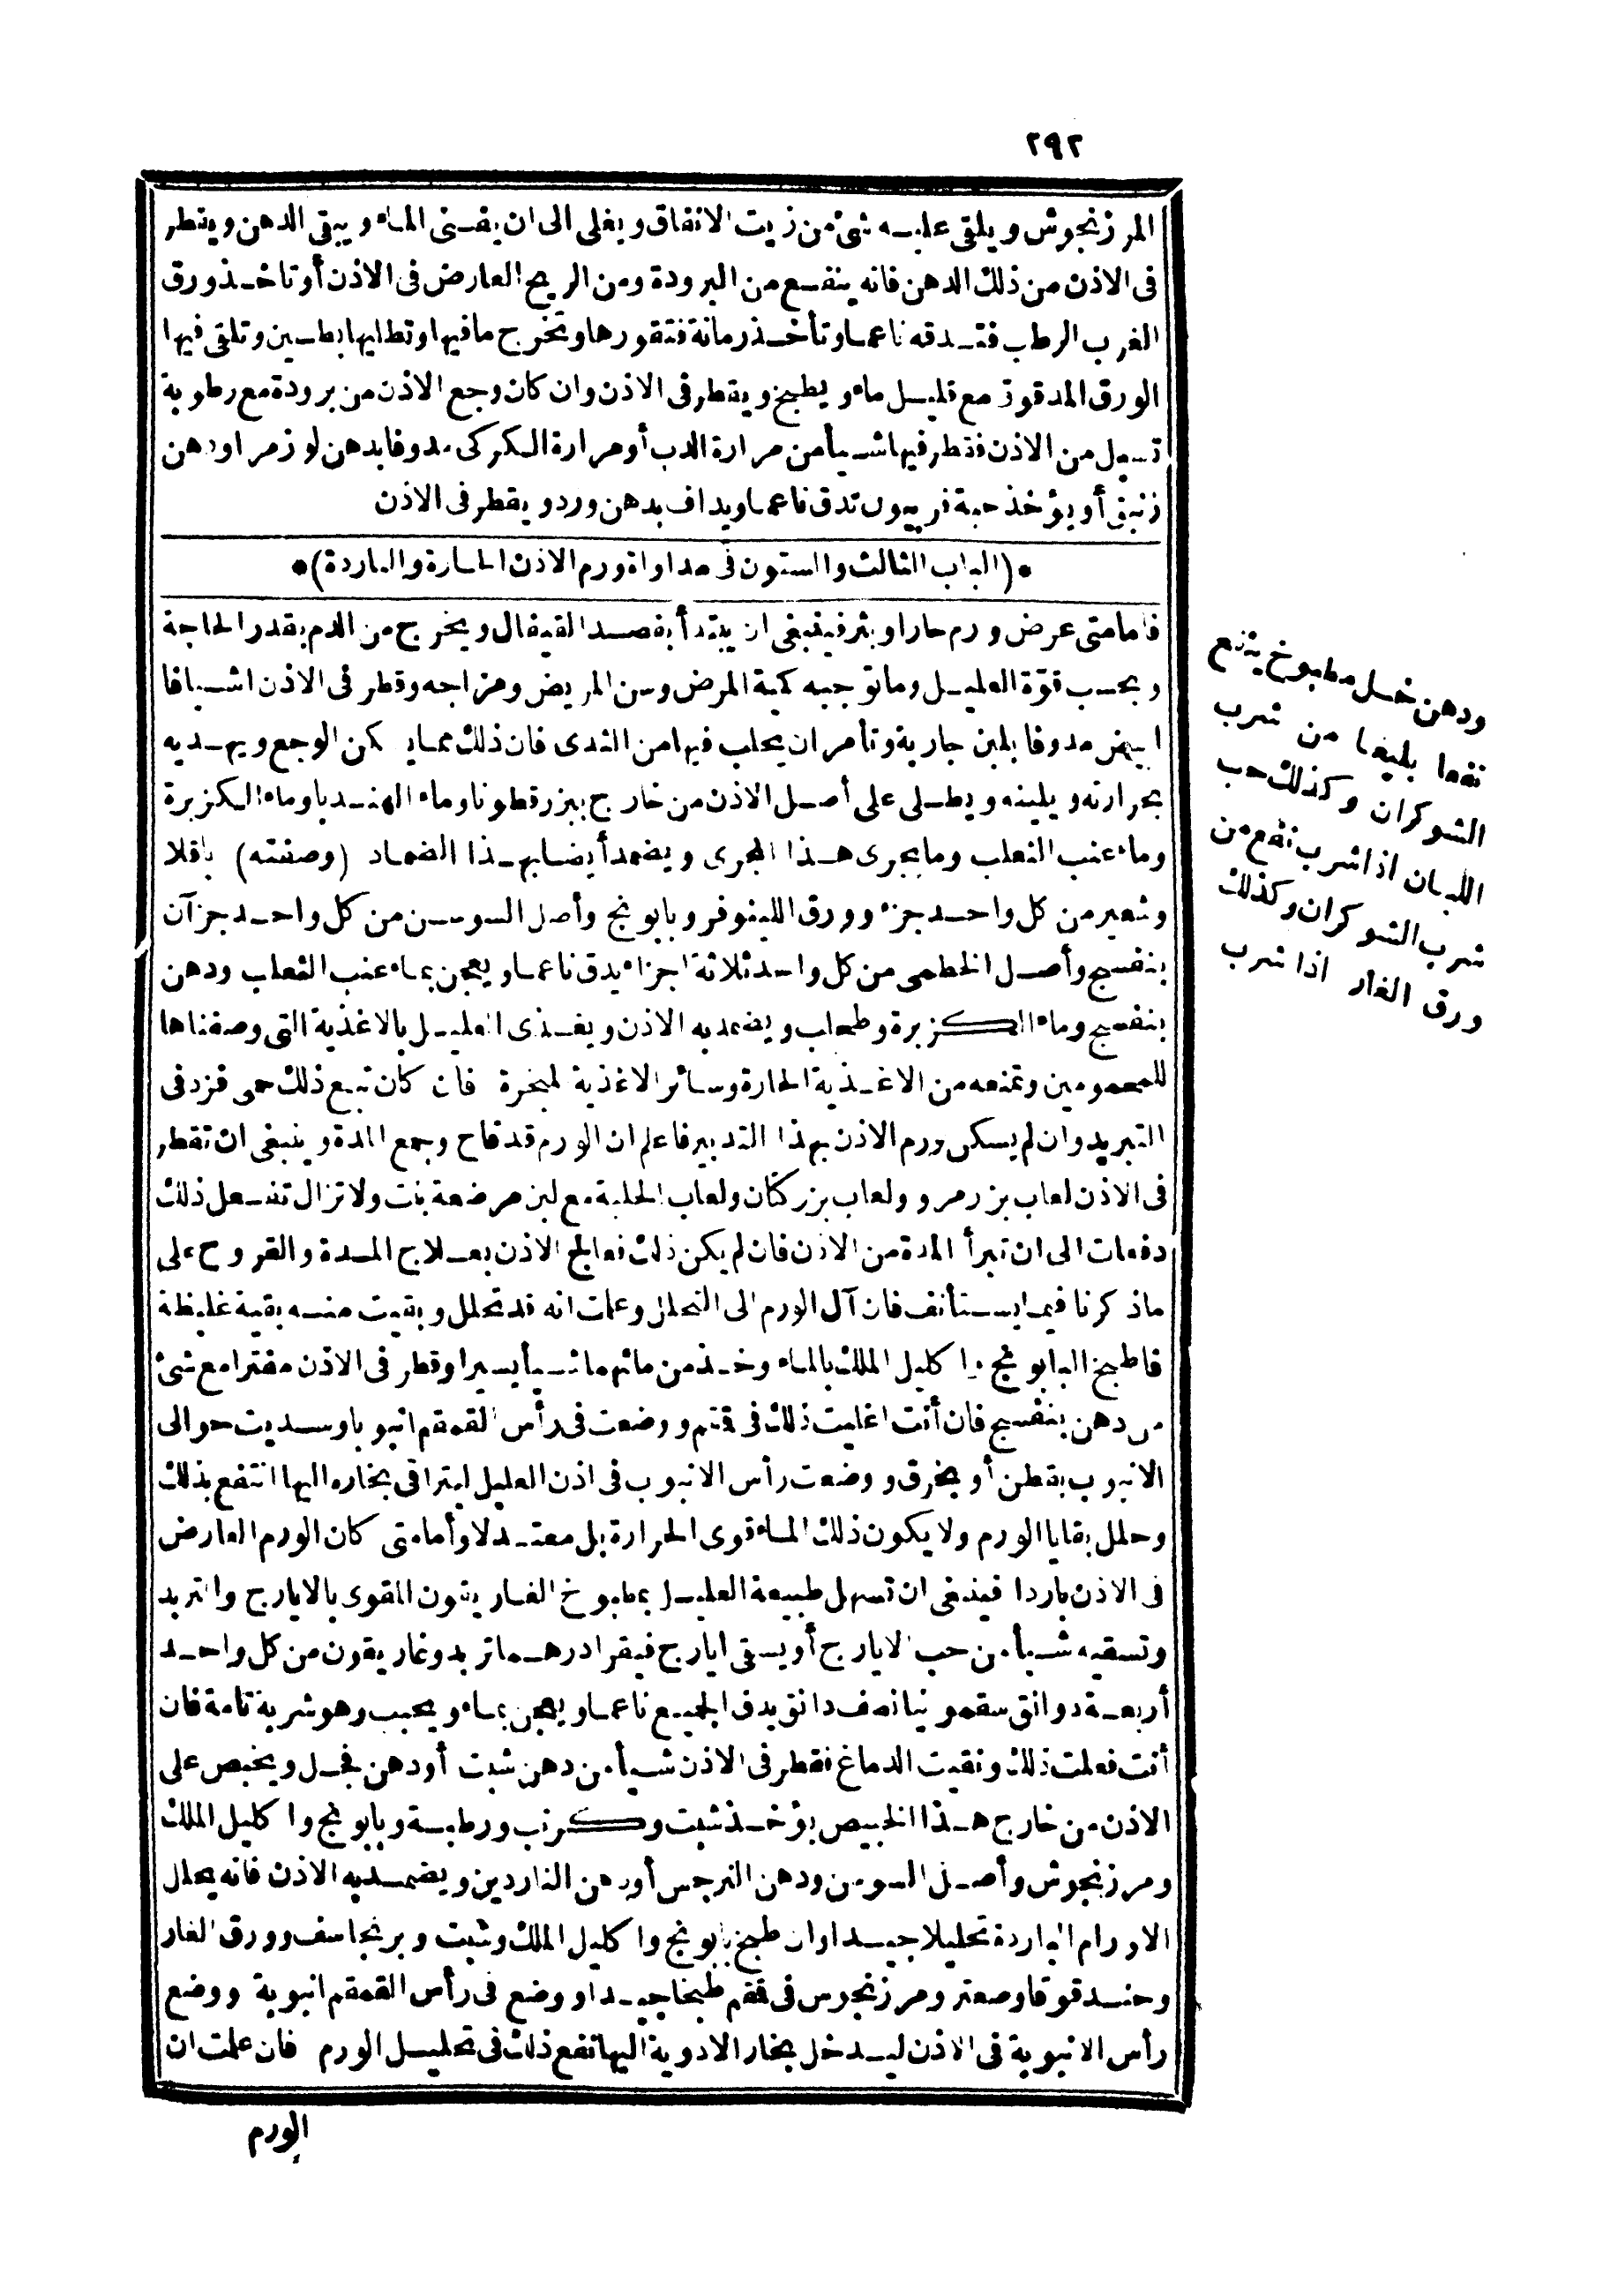 ٢٩٢
المرزنجوش ويلقى عليه شئ من زيت الانفاق ويغلى الى ان يفنى الماء ويبقى الدهن ويقطر
فى الاذن من ذلك الدهن فانه ينفع من البرودة ومن الريح العارض فى الاذن أو تاخذ ورق
الغرب الرطب فتدقه ناعما وتأخذ رمانة فتقورها وتخرج مافيها وتطليها بطين وتلقى فيها
الورق المدقوق مع قليل ماء ويطبخ ويقطر فى الاذن وان كان وجع الاذن من برودة مع رطوبة
تسيل من الاذن فقطر فيها شيأ من مرارة الدب أو مرارة الكركى مدوفا بدهن لوز مر او دهن
زنبق أو يؤخذ حبة فربيون تدق ناعما ويداف بدهن ورد ويقطر فى الاذن
•(الباب الثالث والستون فى مداواة ورم الاذن الحارة والباردة)•
فأما متى عرض ورم حار او بثر فينبغى ان يبتدأ بفصد القيفال ويخرج من الدم بقدر الحاجة
وبحسب قوّة العليل وما توجبه كمية المرض وسن المريض ومزاجه وقطر فى الاذن اشيافا
ابيض مدوفا بلبن جارية وتأمر ان يحلب فيها من الثدى فان ذلك مما يسكن الوجع ويهديه
بحرارته ويلينه ويطلى على أصل الاذن من خارج ببزرقطونا وماء الهندبا وماء الكزبرة
وماء عنب الثعلب وما يجرى هذا المجرى ويضمد أيضا بهذا الضماد (وصفته) باقلا
وشعير من كل واحد جزء وورق اللينوفر وبابونج وأصل السوسن من كل واحد جزآن
بنفسج وأصل الخطمى من كل واحد ثلاثة اجزاء يدق ناعما ويعجن بماء عنب الثعلب ودهن
بنفسج وماء الكزبرة وطحلب ويضمد به الاذن ويغذى العليل بالاغذية التى وصفناها
للمحمومين وتمنعه من الاغذية الحارة وسائر الاغذية المبخرة فان كان تبع ذلك حمى فزد فى
التبريد وان لم يسكن ورم الاذن بهذا التدبير فاعلم ان الورم قد قاح وجمع المدة وينبغى ان تقطر
فى الاذن لعاب بزر مرو ولعاب بزركتان ولعاب الحلبة مع لبن مرضعة بنت ولا تزال تفعل ذلك
دفعات الى ان تبرأ المدة من الاذن فان لم يكن ذلك فعالج الاذن بعلاج المدة والقروح على
ماذكرنا فيما يستأنف فان آل الورم الى التحلل وعلمت انه قد تحلل وبقيت منه بقية غليظة
فاطبخ البابونج واكليل الملك بالماء وخذ من مائهما شيأ يسيرا وقطر فى الاذن مفترا مع شئ
من دهن بنفسج فان أنت اغليت ذلك فى قمقم ووضعت فى رأس القمقم انبوبا وسديت حوالى
الانبوب بقطن أو بخرق ووضعت رأس الانبوب فى اذن العليل ليتراقى بخاره اليها انتفع بذلك
وحلل بقايا الورم ولا يكون ذلك الماء قوى الحرارة بل معتدلا وأما متى كان الورم العارض
فى الاذن باردا فينبغى ان تسهل طبيعة العليل بمطبوخ الغاريقون المقوى بالايارج والتربد
وتسقيه شيأ من حب الايارج أو يسقى ايارج فيقرا درهما تربد وغاريقون من كل واحد
أربعة دوانق سقمونيا نصف دانق يدق الجميع ناعما ويعجن بماء ويحبب وهو شربة تامة فان
أنت فعلت ذلك ونقيت الدماغ فقطر فى الاذن شيأ من دهن شبت أو دهن فجل ويخبص على
الاذن من خارج هذا الخبيص يؤخذ شبت وكرنب ورطبة وبابونج واكليل الملك
ومرزنجوش وأصل السوسن ودهن النرجس أو دهن الناردين ويضمد به الاذن فانه يحلل
الاورام الباردة تحليلا جيدا وان طبخ بابونج واكليل الملك وشبت وبرنجاسف وورق الغار
وحندقوقا وصعتر ومرزنجوس فى قمقم طبخا جيدا ووضع فى رأس القمقم انبوبة ووضع
رأس الانبوبة فى الاذن ليدخل بخار الادوية اليها نفع ذلك فى تحليل الورم فان علمت ان
الورم
ودهن خل مطبوخ ينفع
نفعا بليغا من شرب
الشوكران وكذلك حب
اللبان اذا شرب نفع من
شرب الشوكران وكذلك
ورق الغار اذا شرب